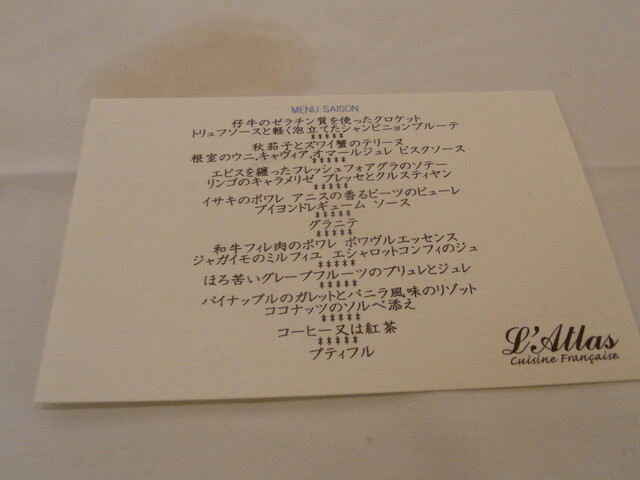 MENU SAISON
仔牛のゼラチン質を使ったクロケット
トリュフソースと軽く泡立てたシャンピニョンブルーテ
*****
秋茄子とズワイ蟹のテリーヌ
根室のウニ,キャヴィア,オマールジュレ ビスクソース
*****
エピスを纏ったフレッシュフォアグラのソテー
リンゴのキャラメリゼ ブレッセとクルスティヤン
*****
イサキのポワレ アニスの香るビーツのピューレ
ブイヨンドレギューム ソース
*****
グラニテ
*****
和牛フィレ肉のポワレ ポワヴルエッセンス
ジャガイモのミルフィユ エシャロットコンフィのジュ
*****
ほろ苦いグレープフルーツのブリュレとジュレ
*****
パイナップルのガレットとバニラ風味のリゾット
ココナッツのソルベ添え
*****
コーヒー又は紅茶
*****
プティフル
L'Atlas
Cuisine Française